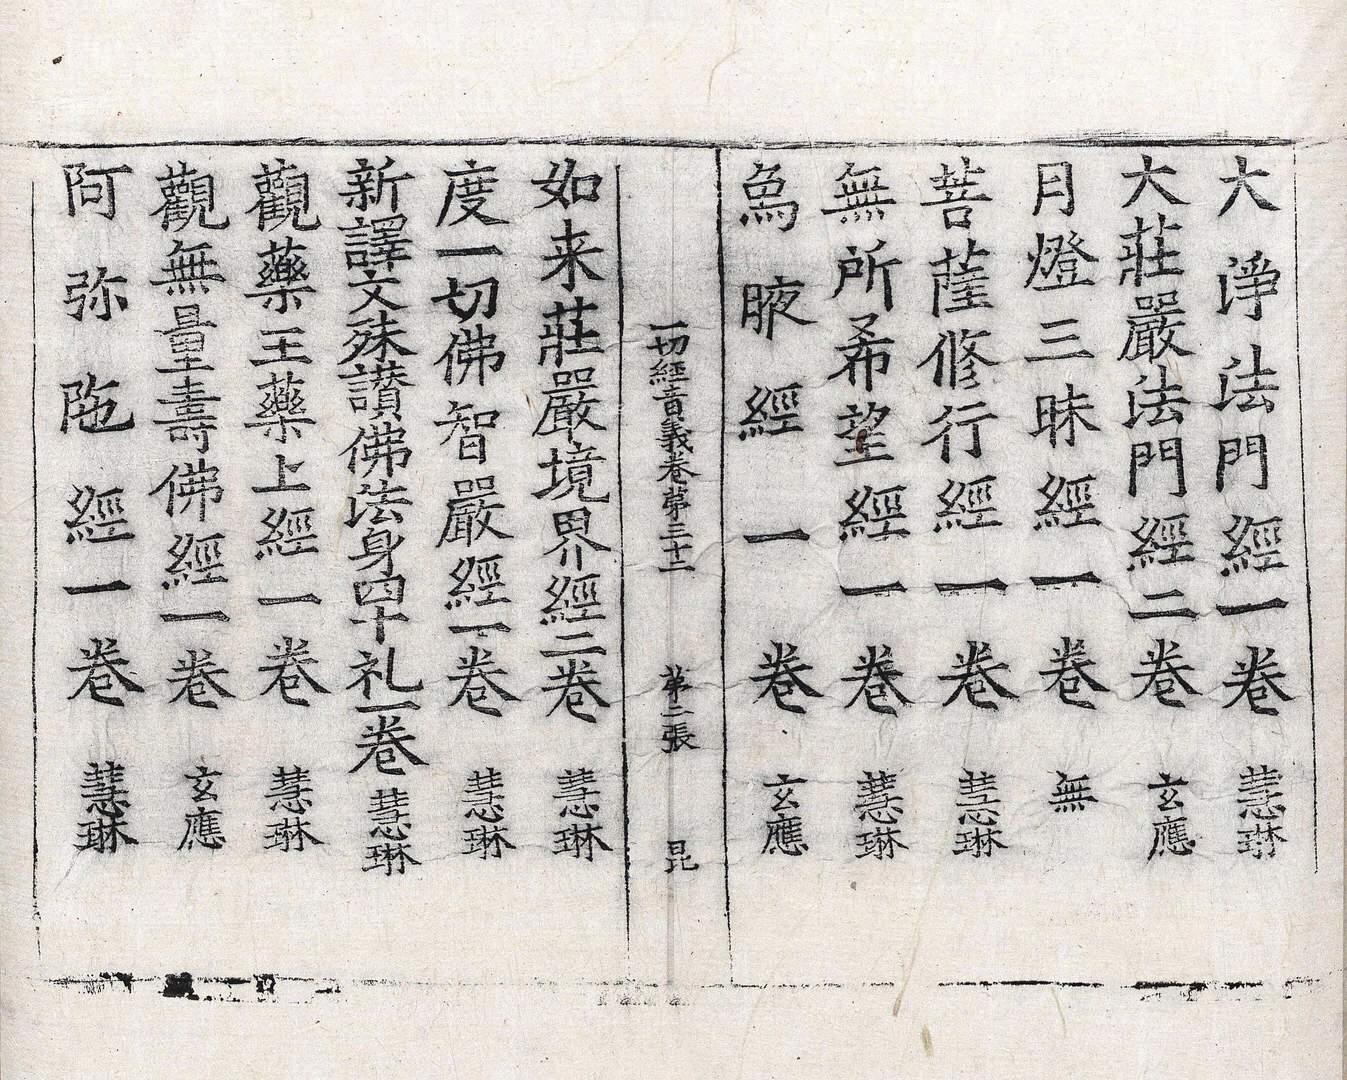 大淨法門經一卷 慧琳
大莊嚴法門經二卷 玄應
月燈三昧經一卷 無
菩薩修行經一卷 慧琳
無所希望經一卷 慧琳
為腋經一卷 玄應
一切經音義卷苐三十二 苐二張 昆
如来莊嚴境界經二卷 慧琳
度一切佛智嚴經一卷 慧琳
新譯文殊讃佛法身四十礼一卷 慧琳
觀藥王藥上經一卷 慧琳
觀無量壽佛經一卷 玄應
阿弥陁經一卷 慧琳